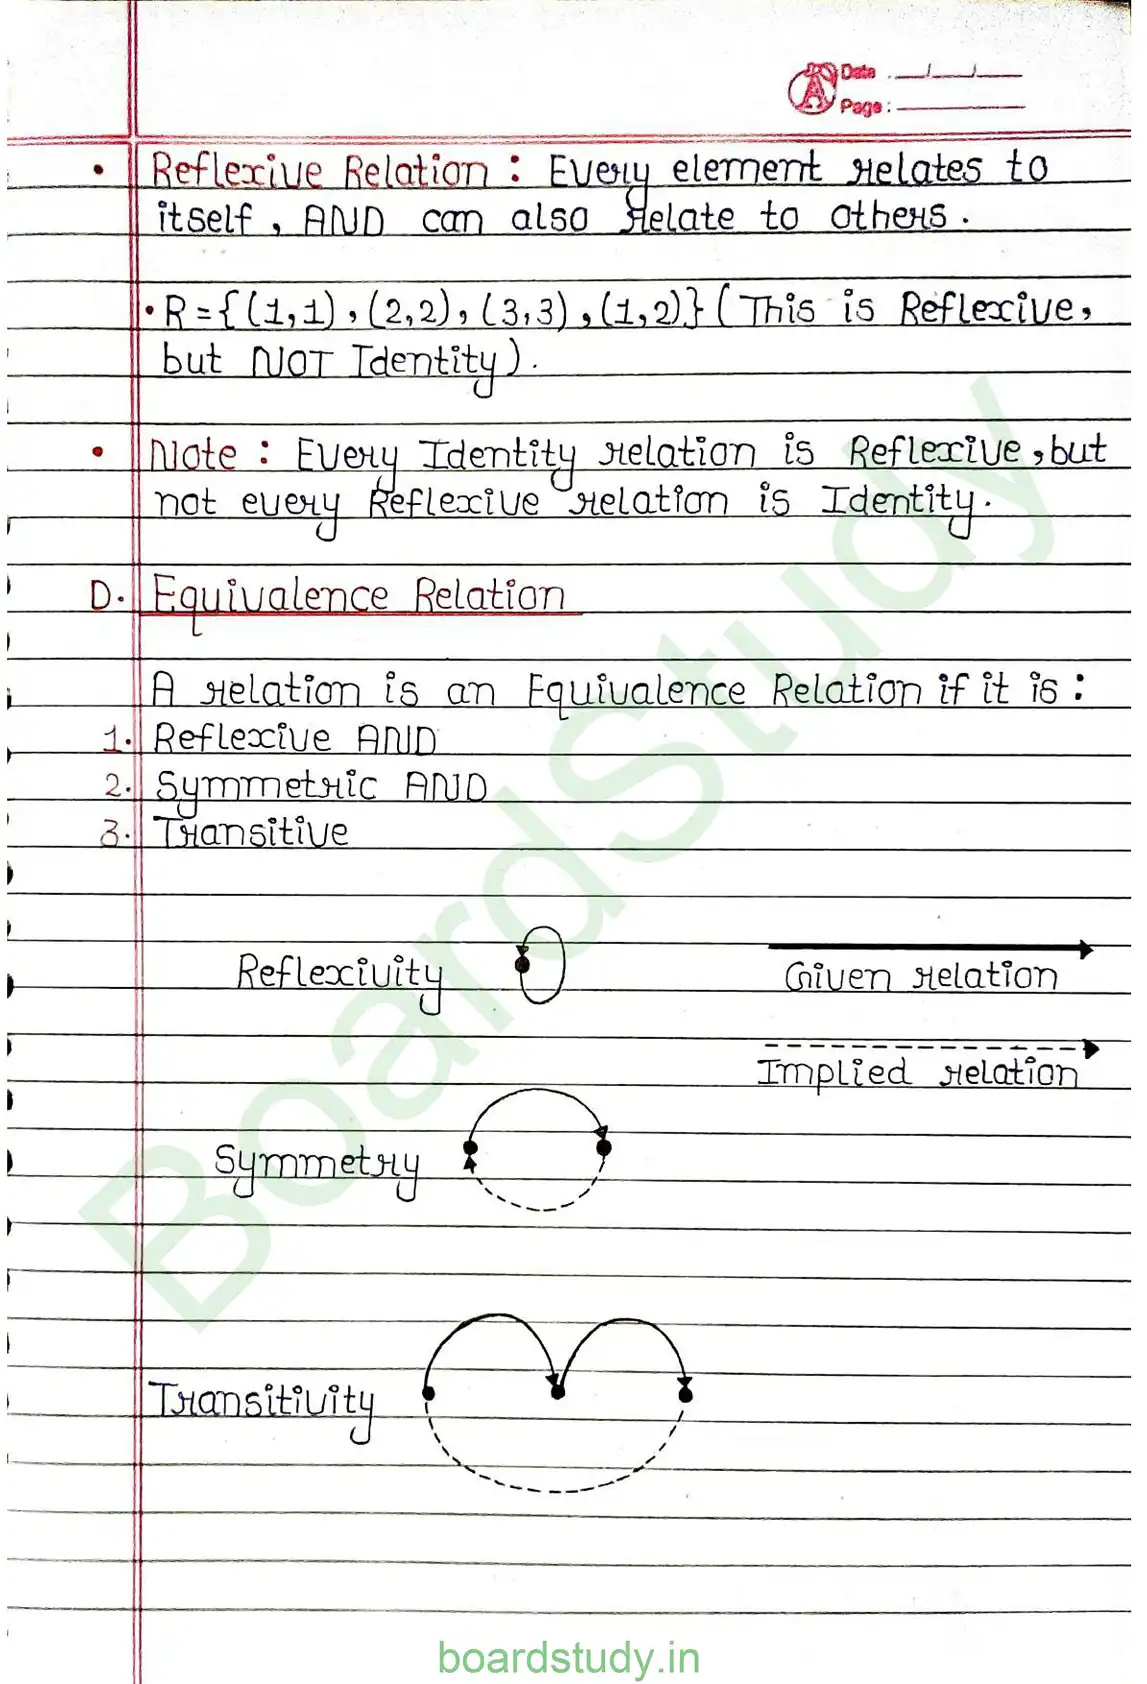 Date
Page:
• Reflexive Relation : Every element relates to
itself, AND can also relate to others.
• R = {(1,1), (2,2), (3,3), (1,2)} (This is Reflexive,
but NOT Identity).
• Note : Every Identity relation is Reflexive, but
not every Reflexive relation is Identity.
D. Equivalence Relation
A relation is an Equivalence Relation if it is :
1. Reflexive AND
2. Symmetric AND
3. Transitive
Reflexivity
Given relation
Implied relation
Symmetry
Transitivity
BoardStudy
boardstudy.in